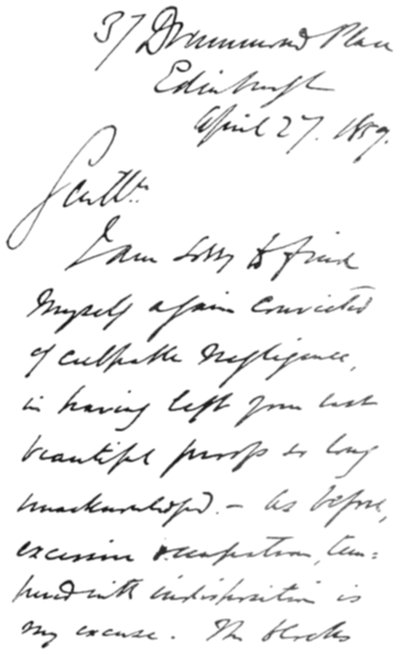 37 Drummond Place
Edinburgh
April 27. 1859.
Gentln.
I am sorry to find
myself again convicted
of culpable negligence,
in having left your last
beautiful proofs so long
unacknowledged. – As before,
excessive occupation, tem=
pered with indisposition is
my excuse. The blocks